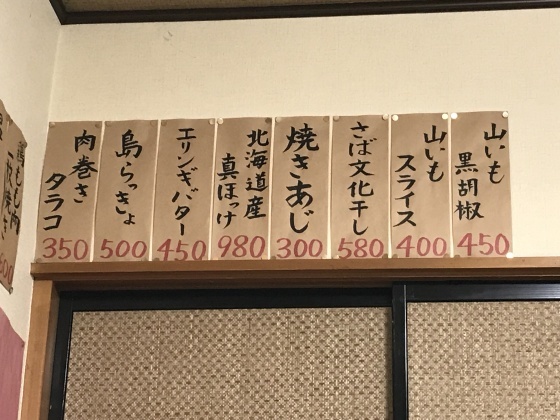 山いも
黒胡椒
450
山いも
スライス
400
さば文化干し
580
焼きあじ
300
北海道産
真ほっけ
980
エリンギバター
450
島らっきょ
500
肉巻き
タラコ
350
鶏もも肉
一枚焼き